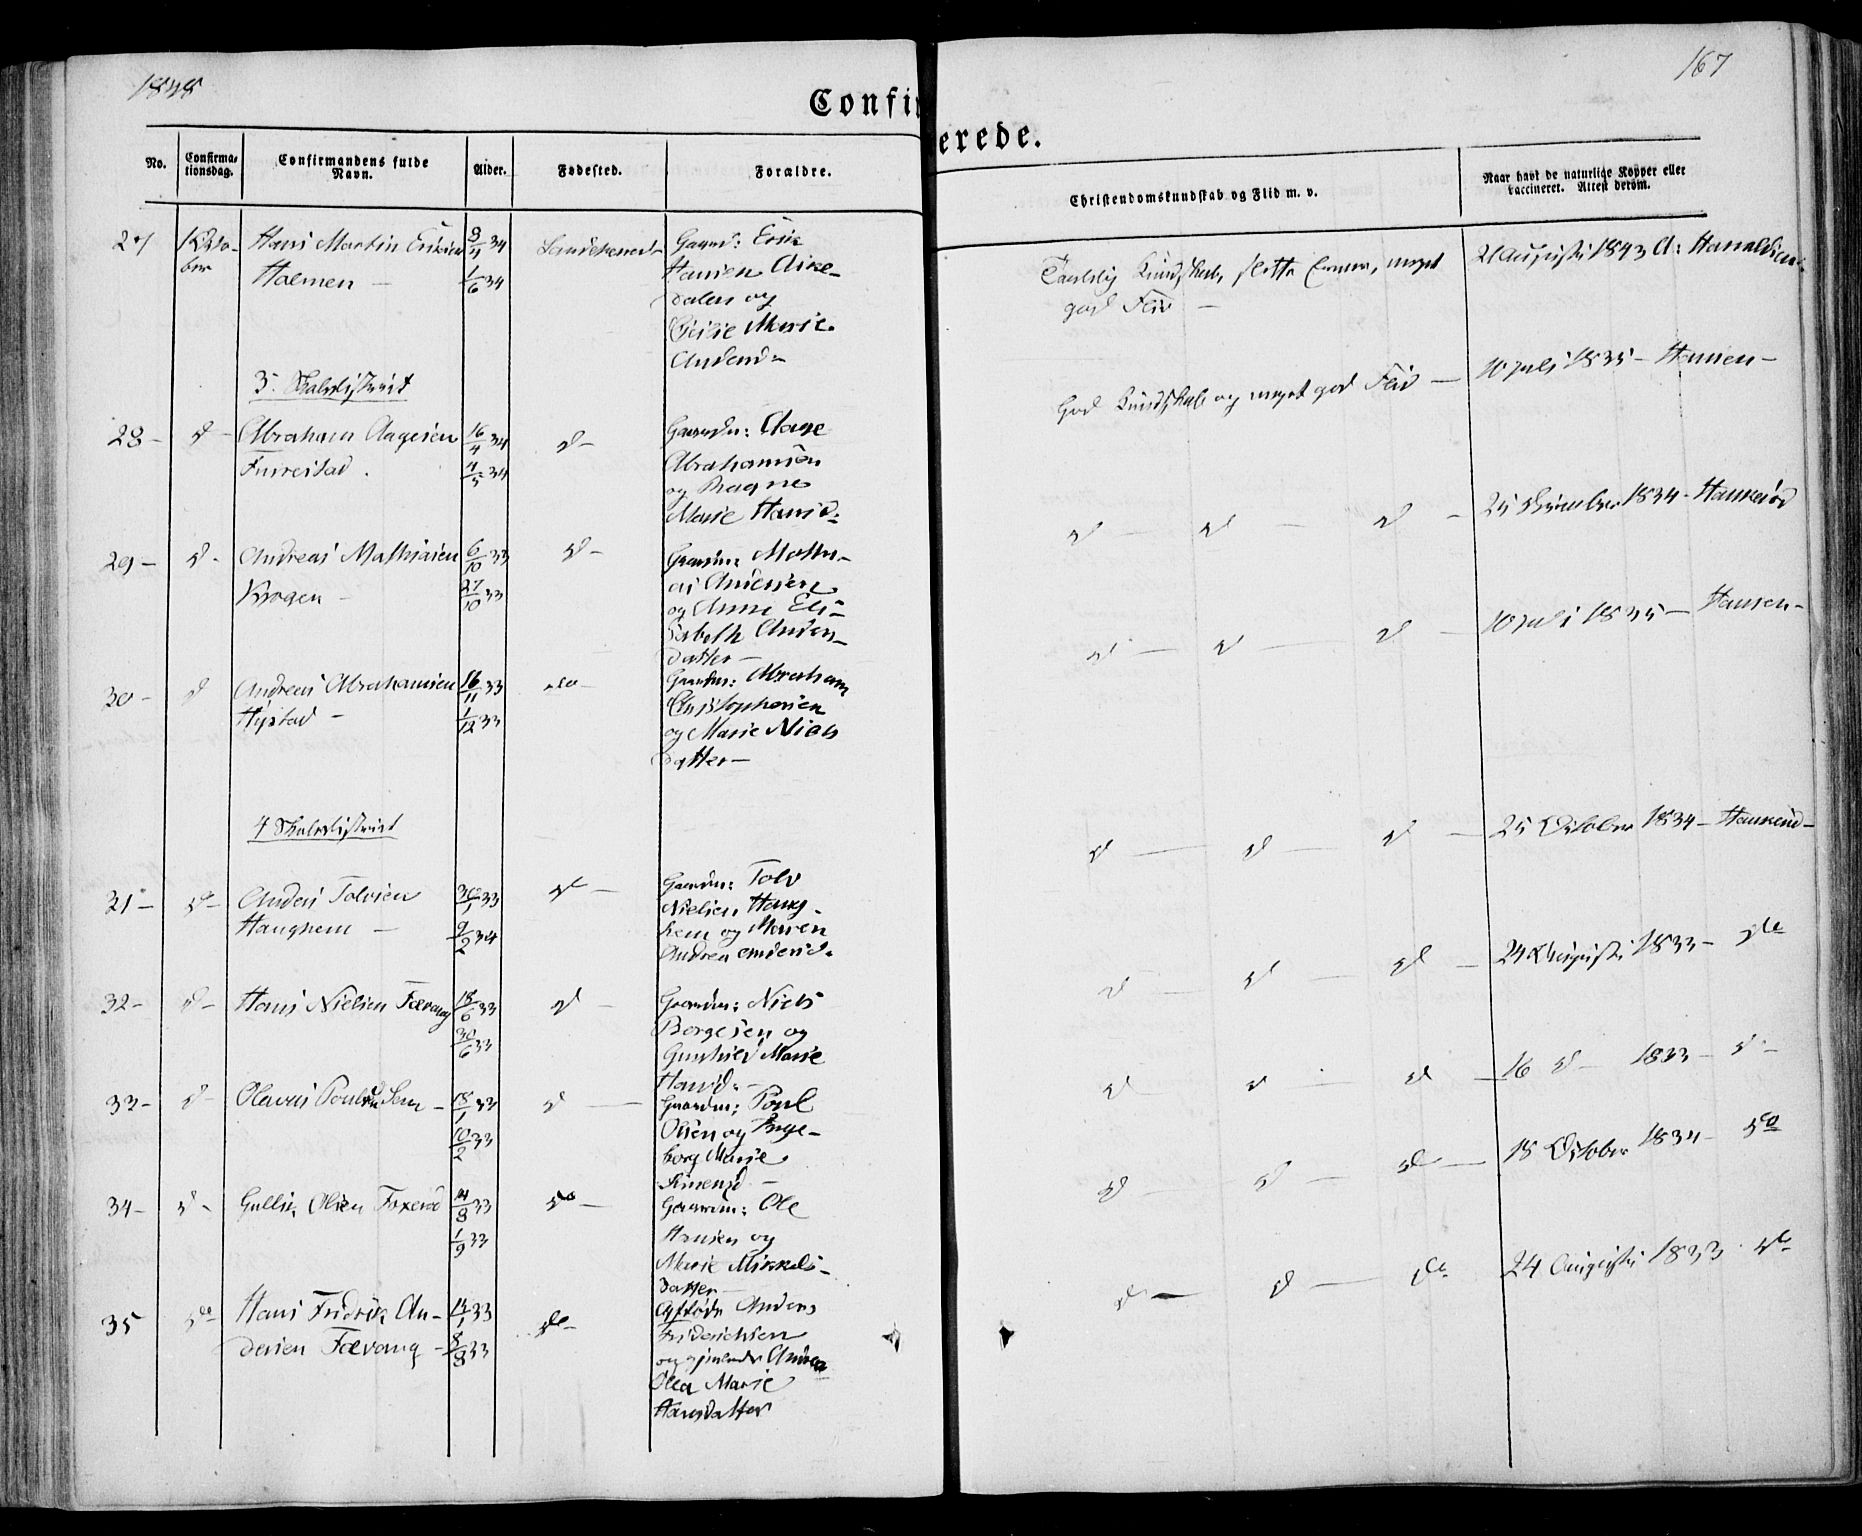 1848
167
Confirmerede.
No.
Confirma-
tionsdag.
Confirmandens fulde
Navn.
Alder.
Fødested.
Forældre.
Christendomskundskab og Flid m. v.
Naar havt de naturlige Kopper eller
vaccineret. Attest derom.
27
Hans Martin Eriksen
Holmen —
3/11 34
1/6 34
Sandehered
Gaardm: Erik
Hansen
dalen og
Marie
Andersd-
Kundskab, slette Evner, meget
god Flid —
21 Augusti 1843 A: Haraldsen
3. Skoledistrict
28 -
d -
Abraham Aagesen
Furrestad .
16/4 34
4/5 34
d -
Gaardm: Aage
Abrahamsen
og Ragne
Marie Hansd:
God Kundskab og meget god Flid —
10 Juli 1835 - Hansen -
29 -
d -
Andreas Mathiasen
Krogen -
6/10 33
27/10 33
d -
Gaardm: Mathi-
as Andersen
og Anne Eli-
sabeth Anders-
datter -
d — d — d -
1834 -
30 -
d
Andreas Abrahamsen
Hystad -
16/11 33
1/12 33
do -
Gaardm: Abraham
Christophersen
og Marie Niels
datter -
d — d — d -
10 Juli 1835 - Hansen -
4 Skoledistrict
31 -
d -
Anders Tolvsen
Haughem -
33
9/2 34
d -
Gaardm: Tolv
Nielsen Haug-
hem og Maren
d — d — d -
25 October 1834 -
32 -
d -
Hans Nielsen Fævang
18/6 33
30/6 33
d -
Gaardm: Niels
Borgesen og
Gunhild Marie
Hansd: -
d — d — d -
24 Augusti 1833 - do
33 -
d -
Olavus Poulsen Sem -
18/1 33
10/2 33
d —
Gaardm: Poul
Olsen og Inge-
borg Marie
d — d — d -
16 d - 1833 - d -
34 -
d -
Gullik Olsen
14/8 33
1/9 33
do -
Gaardm: Ole
Hansen og
Marie Mikkels-
datter -
d — d — d -
18 October 1834 - do
35
do
Hans Fridrik An-
dersen Fævang -
33
8/8 33
do -
Afdøde Anders
Friderichsen
og Andrea
Olea Marie
Hansdatter
d — d — do
24 Augusti 1833 - do